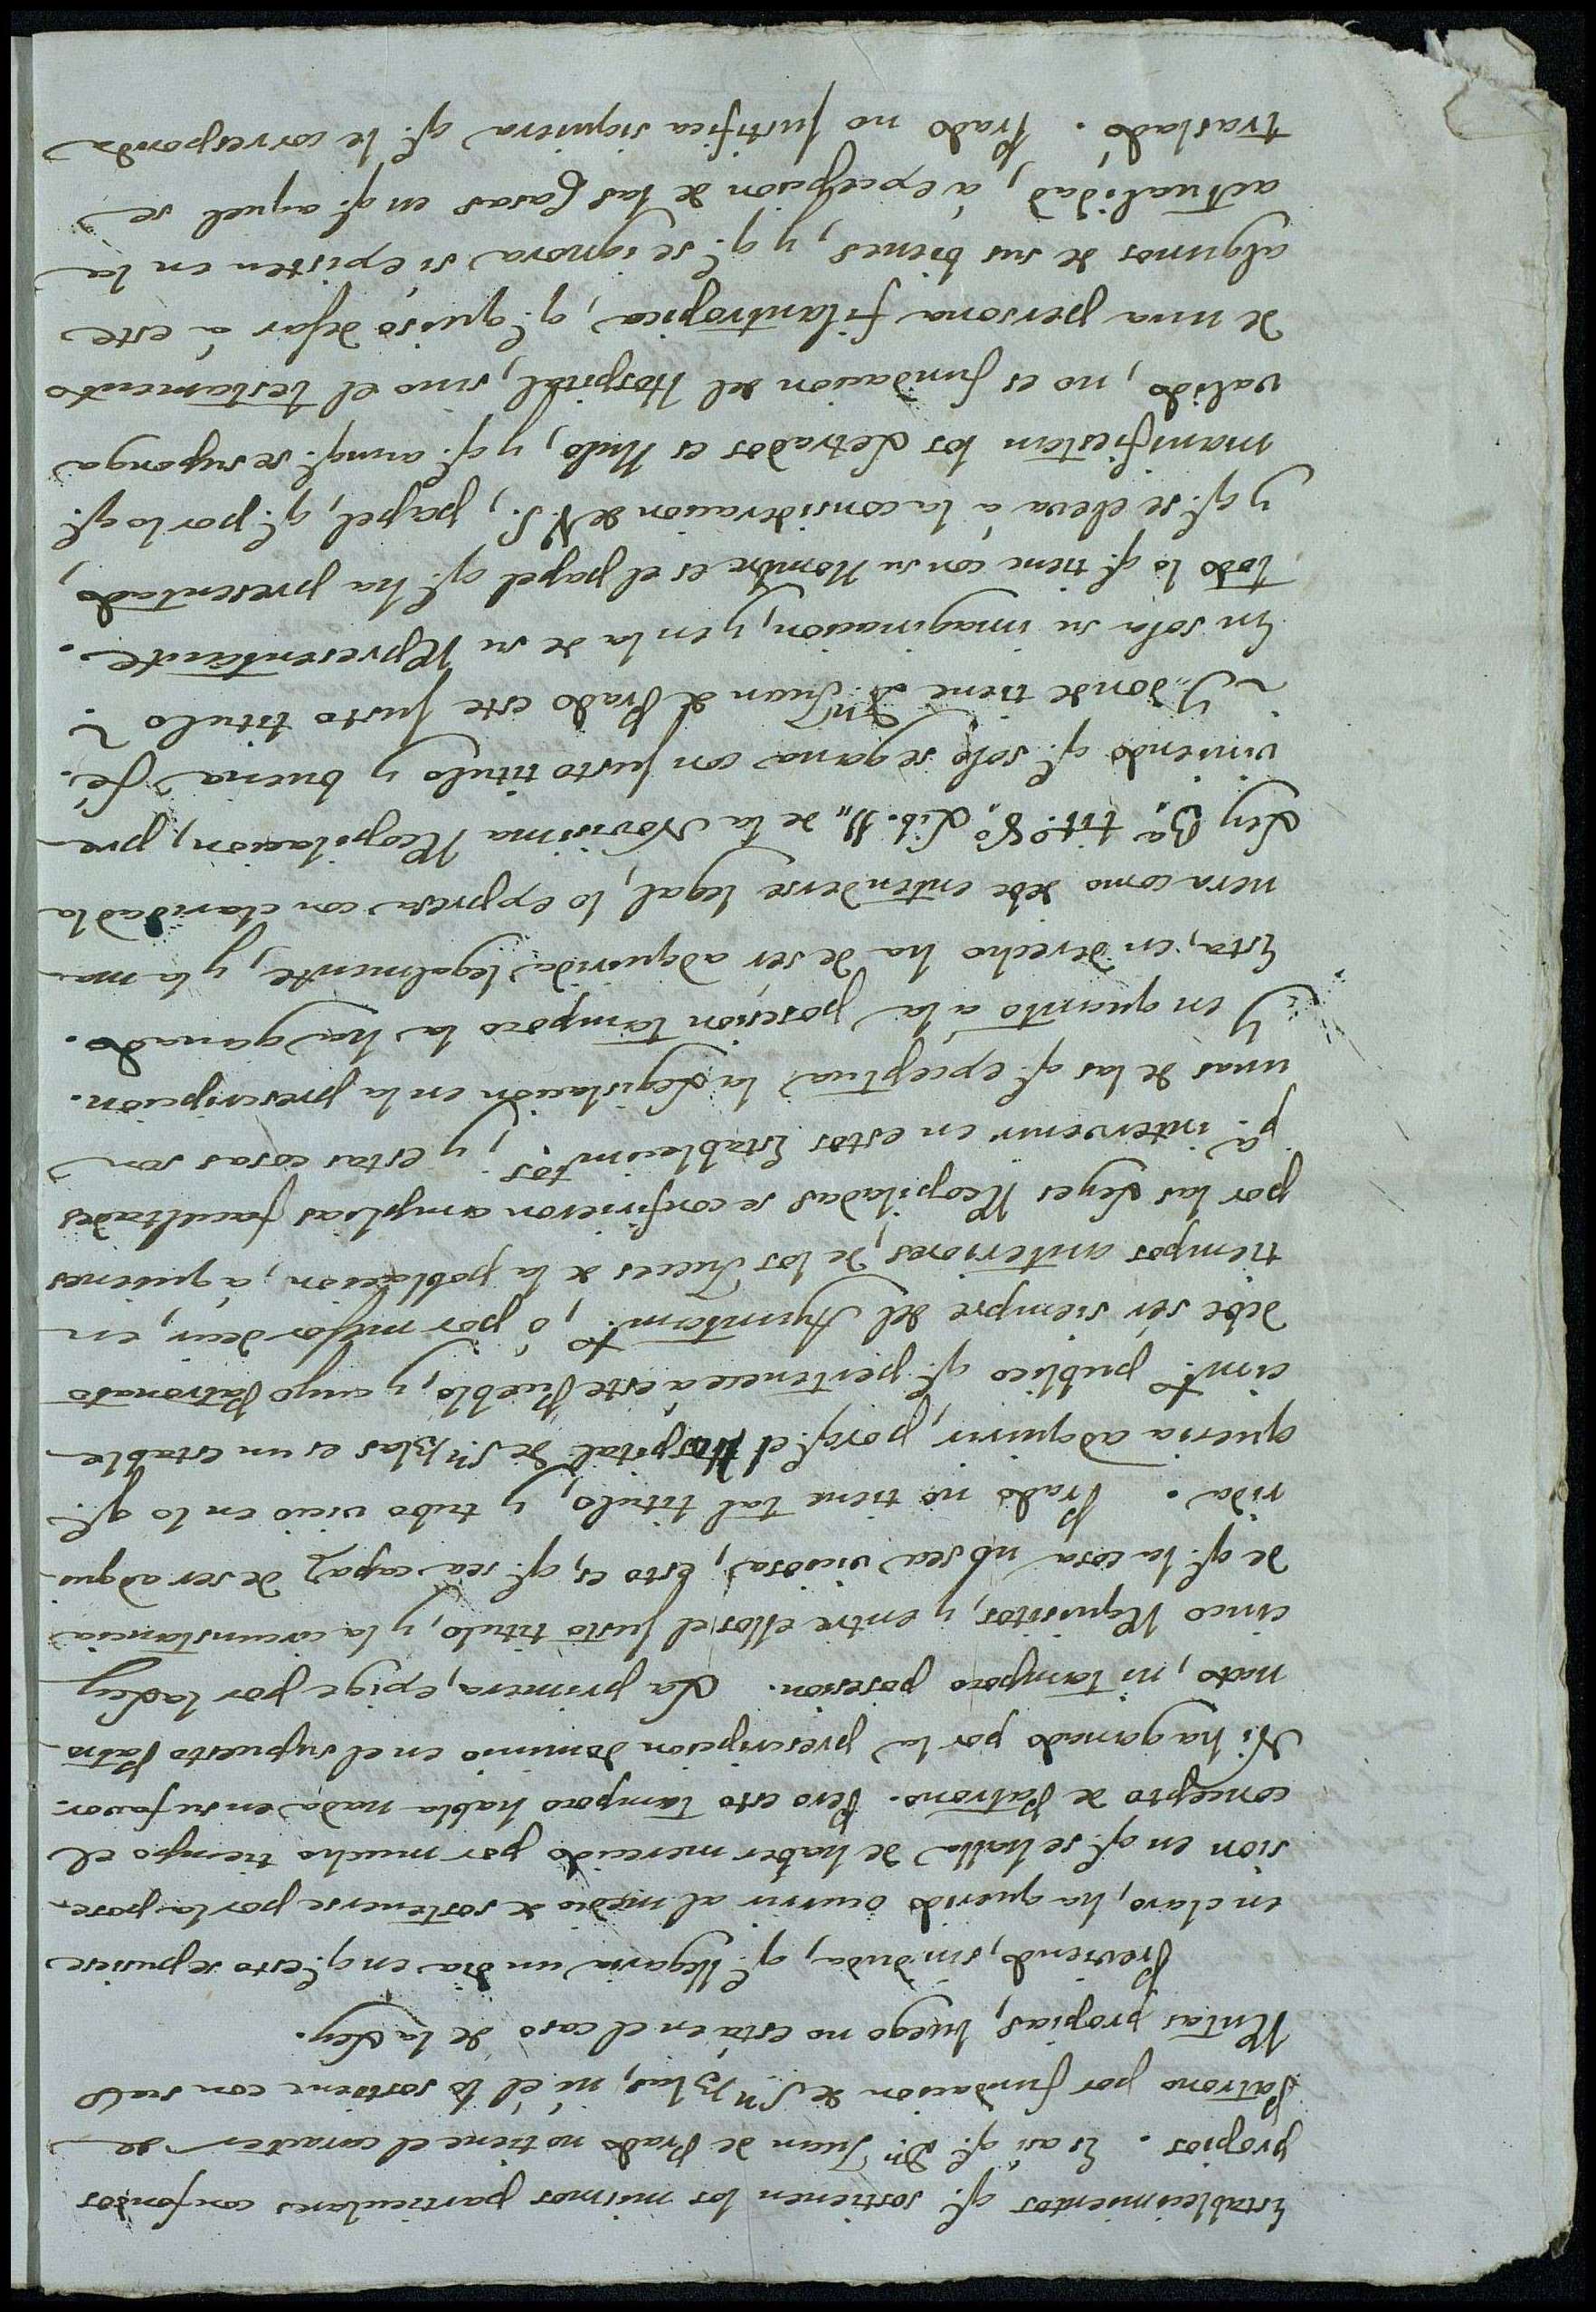 Establecimientos q.e sostienen los mismos particulares con fondos
propios. Es asi q.e Dn. Juan de Prado no tiene el caracter de
Patrono por fundacion de Sn. Blas, ni él lo sostiene con sus
Rentas propias, luego no está en el caso de la Ley.
Previendo, sin duda, q.e llegaria un dia en q.e esto se pusiese
en claro, ha querido ocurrir al medio de sostenerse por la pose-
sion en q.e se halla de haber merecido por mucho tiempo el
concepto de Patrono. Pero esto tampoco habla nada en su favor.
Ni ha ganado por la prescripcion dominio en el supuesto Patro
nato, ni tampoco posesion. La primera, exige por la Ley
cinco Requisitos, y entre ellos el justo titulo, y la circunstancia
de q.e la cosa no sea viciosa, esto es, q.e sea capaz de ser adqui-
rida. Prado no tiene tal titulo, y tubo vicio en lo q.e
queria adquirir, porq.e el Hospital de Sn. Blas es un estable
cim.to publico q.e pertenece á este Pueblo, y cuyo Patronato
debe sér siempre del Ayuntam.to, ó por mejor decir, en
tiempos anteriores, de los Jueces de la poblacion, á quienes
por las Leyes Recopiladas se confirieron amplias facultades
p.a intervenir en estos Establecim.tos, y estas cosas son
unas de las q.e exceptua la Legislacion en la prescripcion.
Y en quanto á la posesion tampoco la ha ganado.
Esta, en derecho ha de sér adquirida legalmente, y la ma-
nera como debe entenderse legal, lo expresa con claridad la
Ley 3.a tit.o 8.o Lib. 11,, de la Novisima Recopilacion, pre-
viniendo q.e solo se gana con justo titulo y buena fé.
¿Y donde tiene Dn. Juan de Prado este justo titulo?
En sola su imaginacion, y en la de su Representante.
todo lo q.e tiene con su Nombre es el papel q.e ha presentado,
y q.e se eleva á la consideracion de V.S., papel, q.e por lo q.e
manifiestan los Letrados es Nulo, y q.e aunq.e se suponga
valido, no es fundacion del Hospital, sino el testamento
de una persona filantropica, q.e quiso dejar á este
algunos de sus bienes, y q.e se ignora si existen en la
actualidad, á excepcion de las Casas en q.e aquel se
trasladó. Prado no justifica siquiera q.e le corresponda